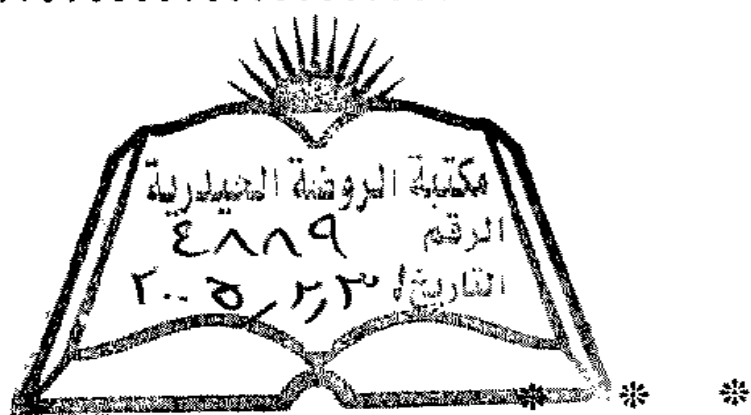 مكتبة الروضة الحيدرية
الرقم ٤٨٨٩
التاريخ